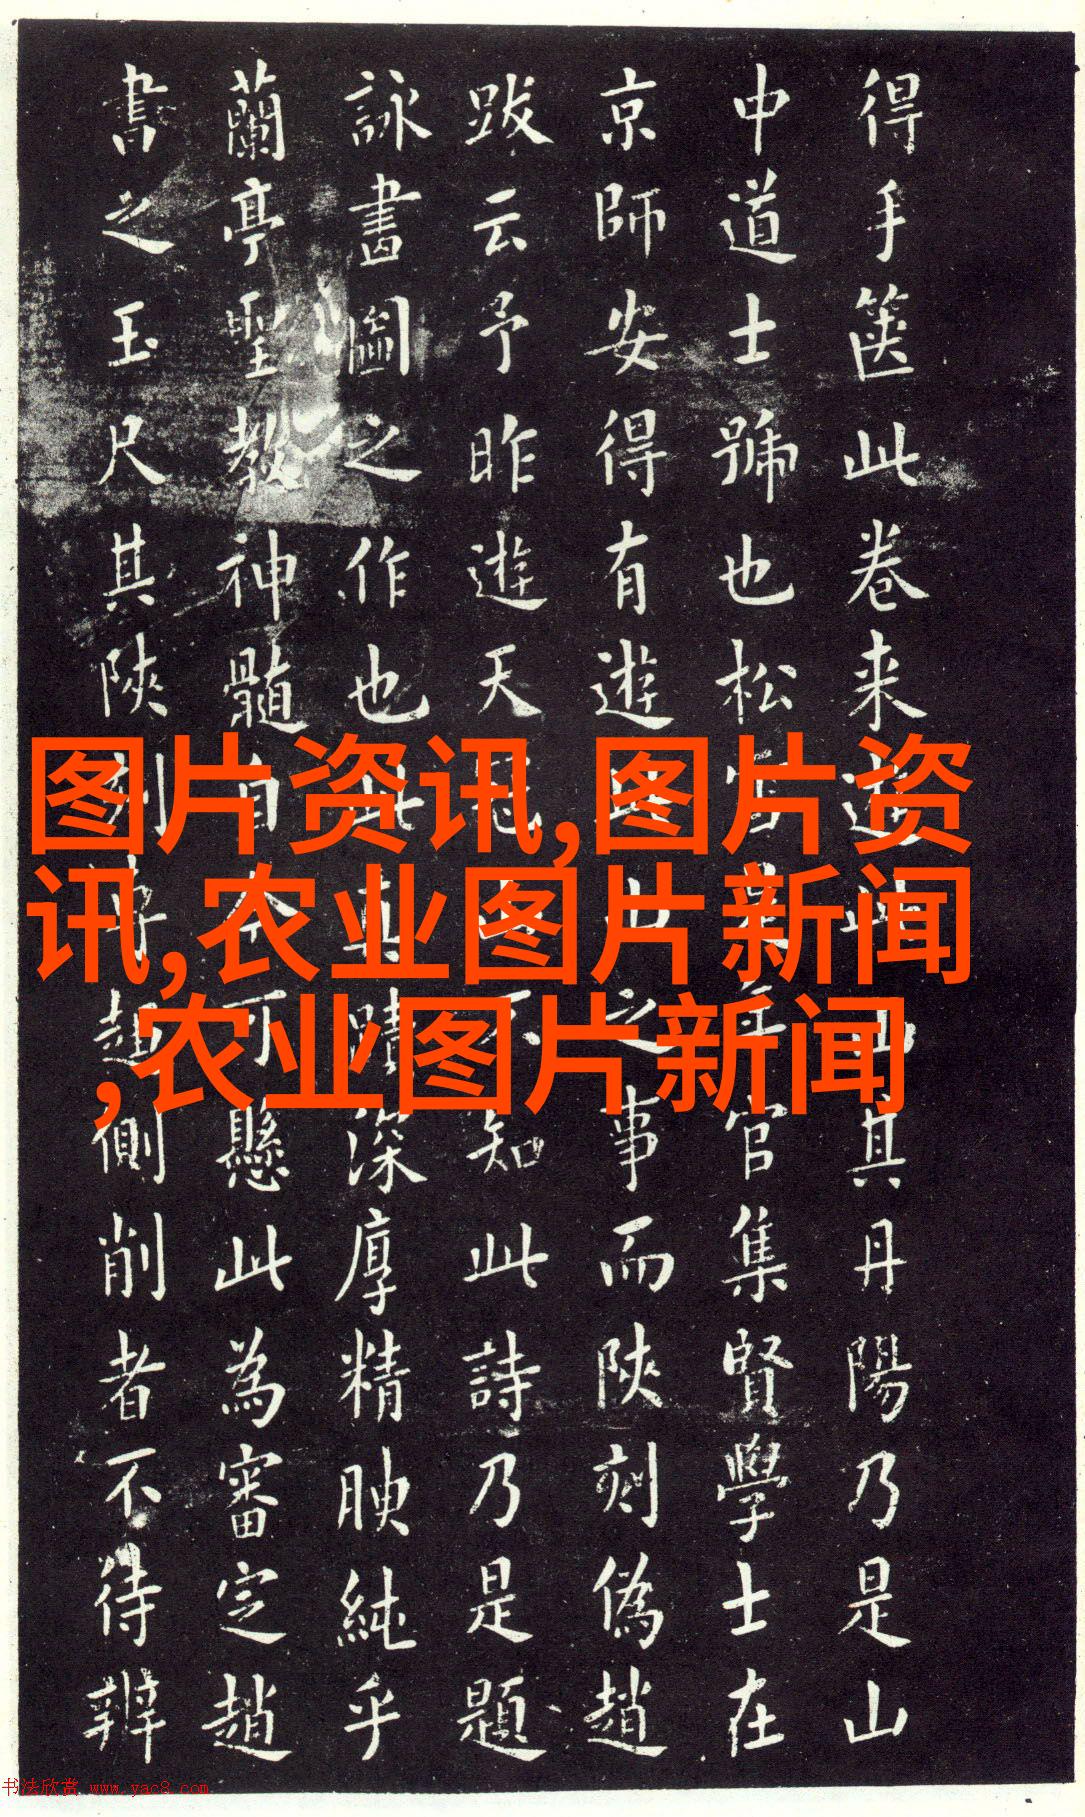 得手篋此卷来遊此其丹陽乃是山
中道士號也松雪官集賢學士在
京師安得有遊此山之事而陝刻偽趙
跋云予昨遊天冠山不知此詩乃是題
詠畵圖之作也此真蹟深厚精腴純乎
蘭亭聖教神髓自可懸此為審定趙
書之玉尺其陝刻趙側削者不待辨
图片资讯,图片资
讯,农业图片新闻
,农业图片新闻
书法欣赏 www.yac8.com